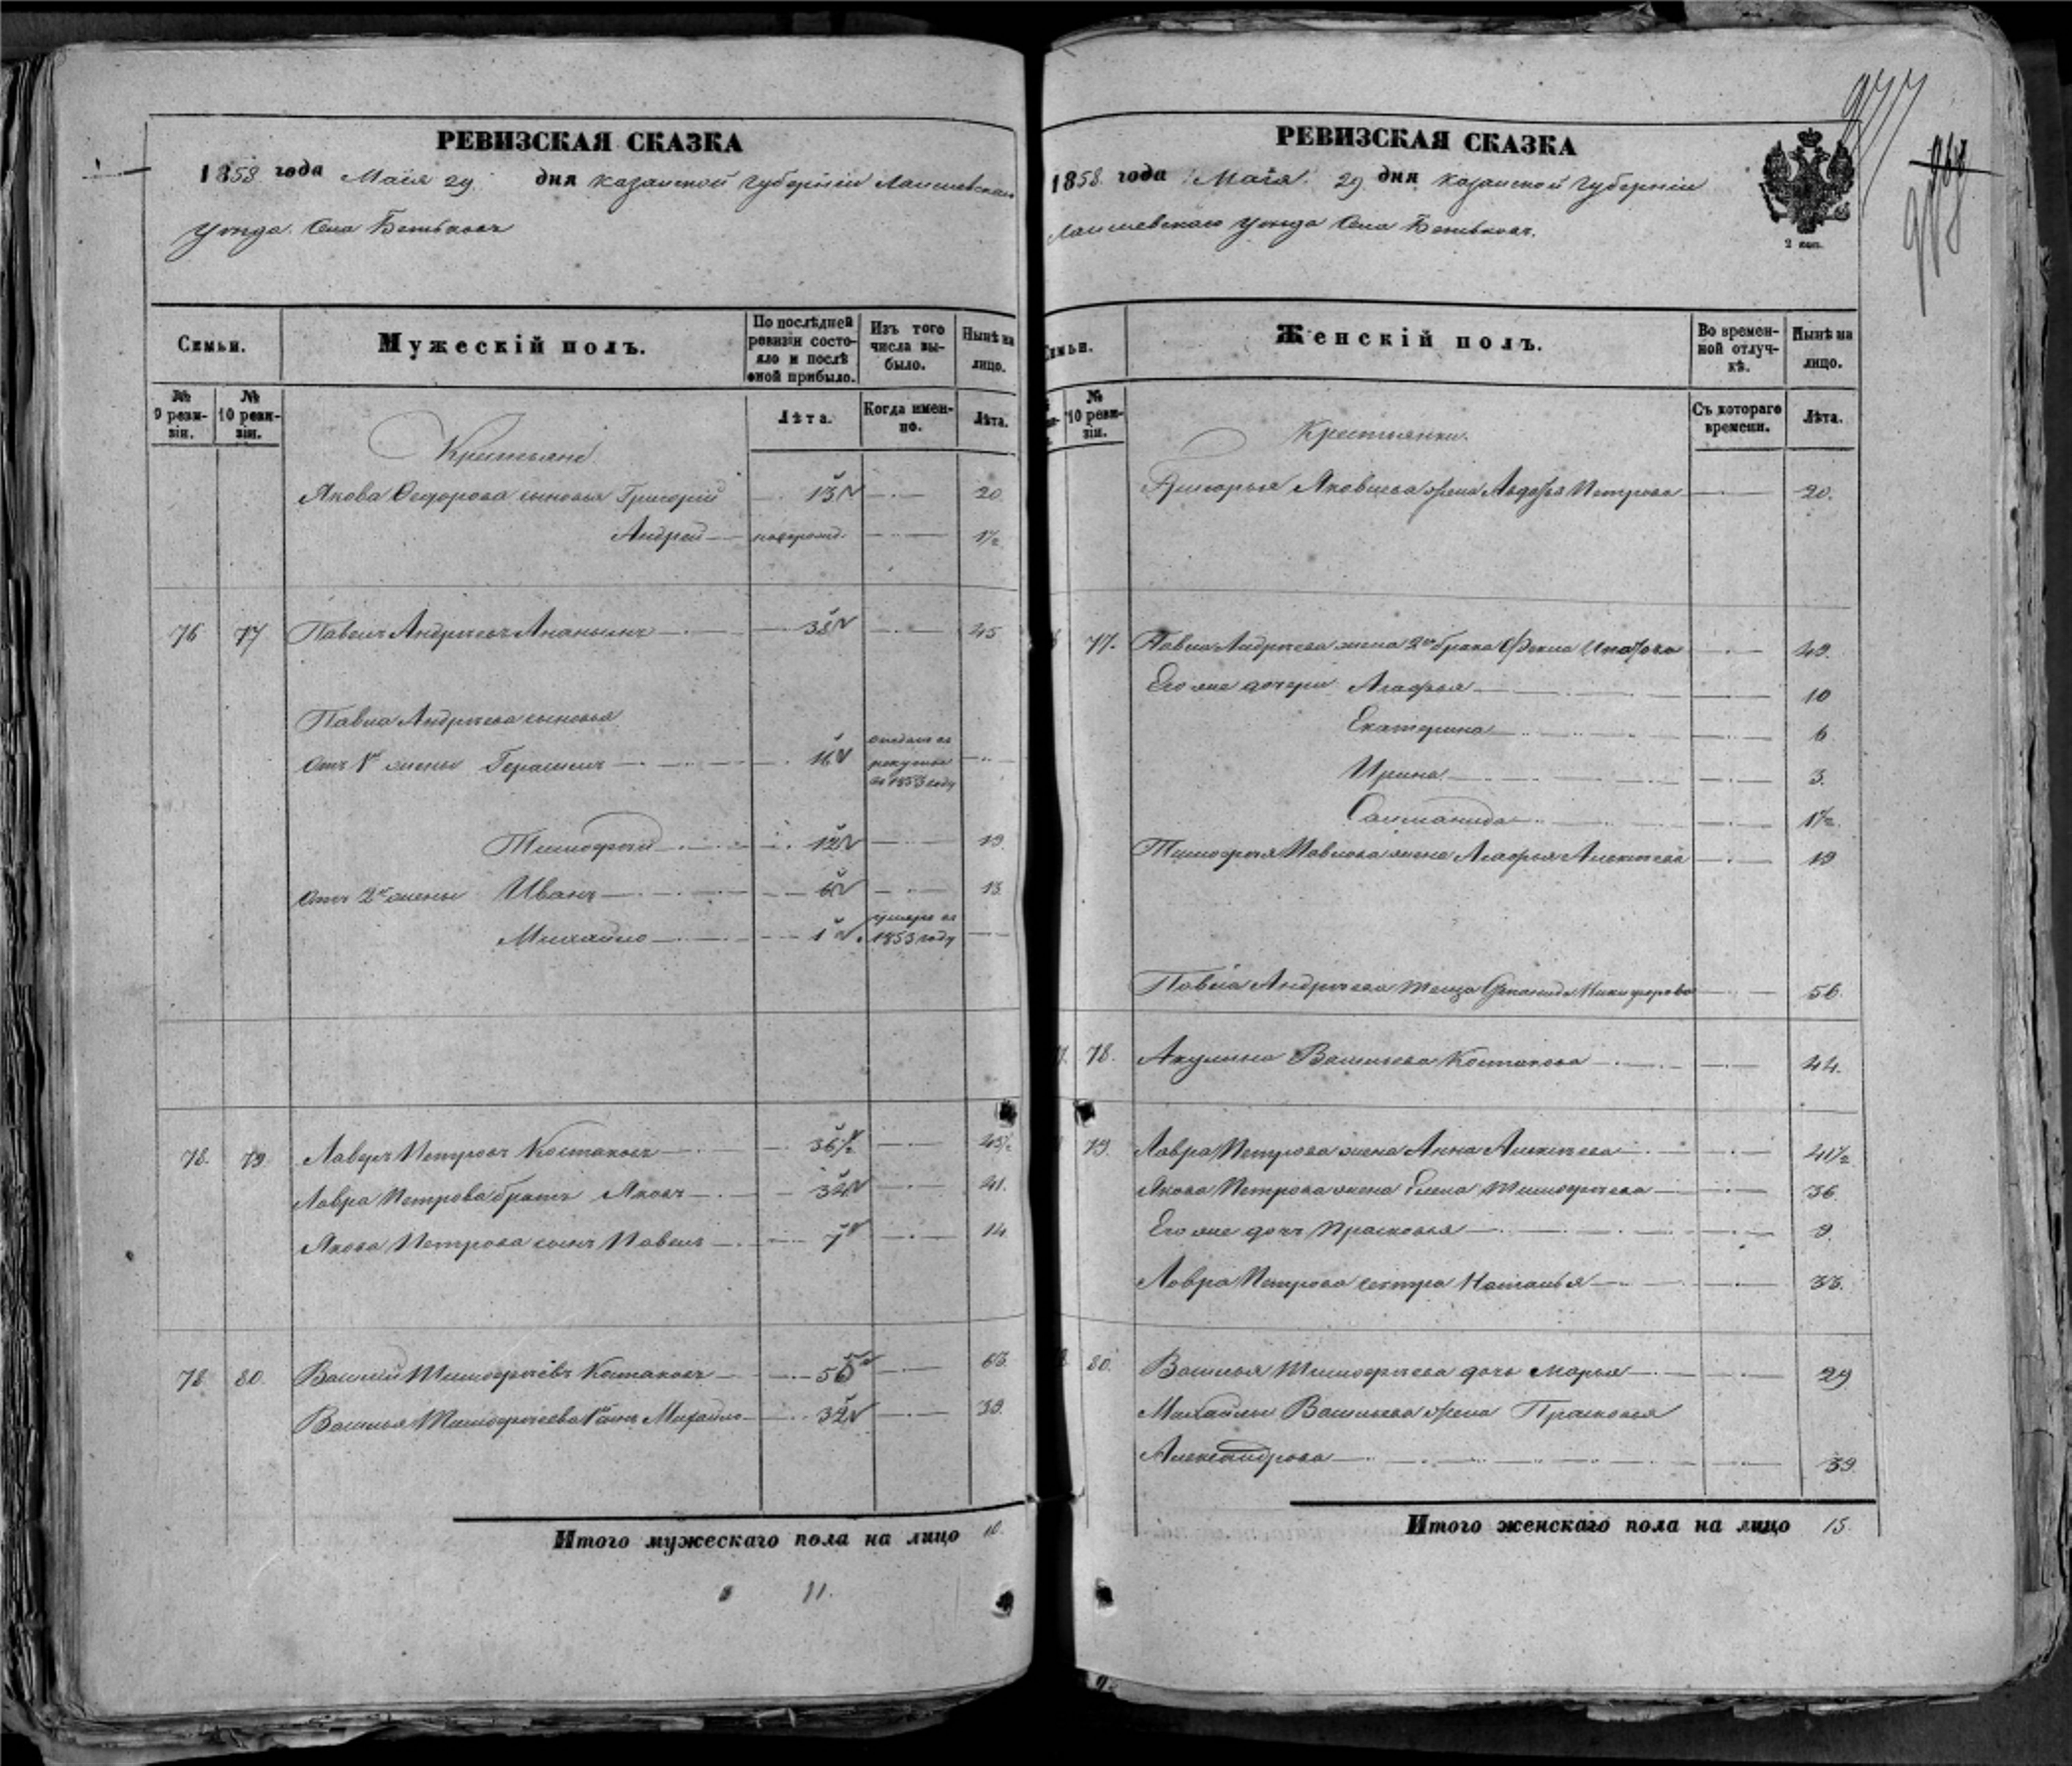 РЕВИЗСКАЯ СКАЗКА
1858 года Маія 29 дня Казанской губерніи Лаишевскаго
уѣзда Села Бетьковъ
Семьи.
Мужескій полъ.
По послѣдней ревизіи состояло и послѣ оной прибыло.
Изъ того числа выбыло.
Нынѣ на лицо.
№ 9 ревизіи.
№ 10 ревизіи.
Лѣта.
Когда именно.
Лѣта.
Крестьяне
Якова Федорова сыновья Григорій 13 20.
Андрей новорожд. 1½
76 77 Павелъ Андреевъ Ананьинъ 38 45
Павла Андреева сыновья
отъ 1й жены Герасимъ 16 отданъ въ рекруты въ 1853 году
Тимофей 12 19.
отъ 2й жены Иванъ 6 13.
Михайло 1 умеръ въ 1853 году
78. 79. Лавръ Петровъ Костаковъ 36½ 43½
Лавра Петрова братъ Яковъ 34 41.
Якова Петрова сынъ Павелъ 7 14
78 80. Василій Тимофеевъ Костаковъ 56 63.
Василья Тимофеева сынъ Михайло 32 39.
Итого мужескаго пола на лицо 10.
11.
977
968
РЕВИЗСКАЯ СКАЗКА
1858 года Маія 29 дня Казанской губерніи
Лаишевскаго уѣзда Села Бетьковъ.
2 коп.
Семьи.
Женскій полъ.
Во временной отлучкѣ.
Нынѣ на лицо.
№ 10 ревизіи.
Съ котораго времени.
Лѣта.
Крестьянки.
Григорья Яковлева жена Авдотья Петрова 20.
77. Павла Андреева жена 2го брака Фекла 49.
Его же дочери Агафья 10
Екатерина 6
Ирина 3.
1½.
Тимофея Павлова жена Агафья Алексеева 19
Павла Андреева теща Степанида Никифорова 56.
78. Акулина Васильева Костакова 44.
79. Лавра Петрова жена Анна Алексеева 41½
Якова Петрова жена Елена Тимофеева 36.
Его же дочь Прасковья 9.
Лавра Петрова сестра Наталья 33.
80. Василья Тимофеева дочь Марья 29
Михайлы Васильева жена Прасковья
Александрова 39.
Итого женскаго пола на лицо 15.